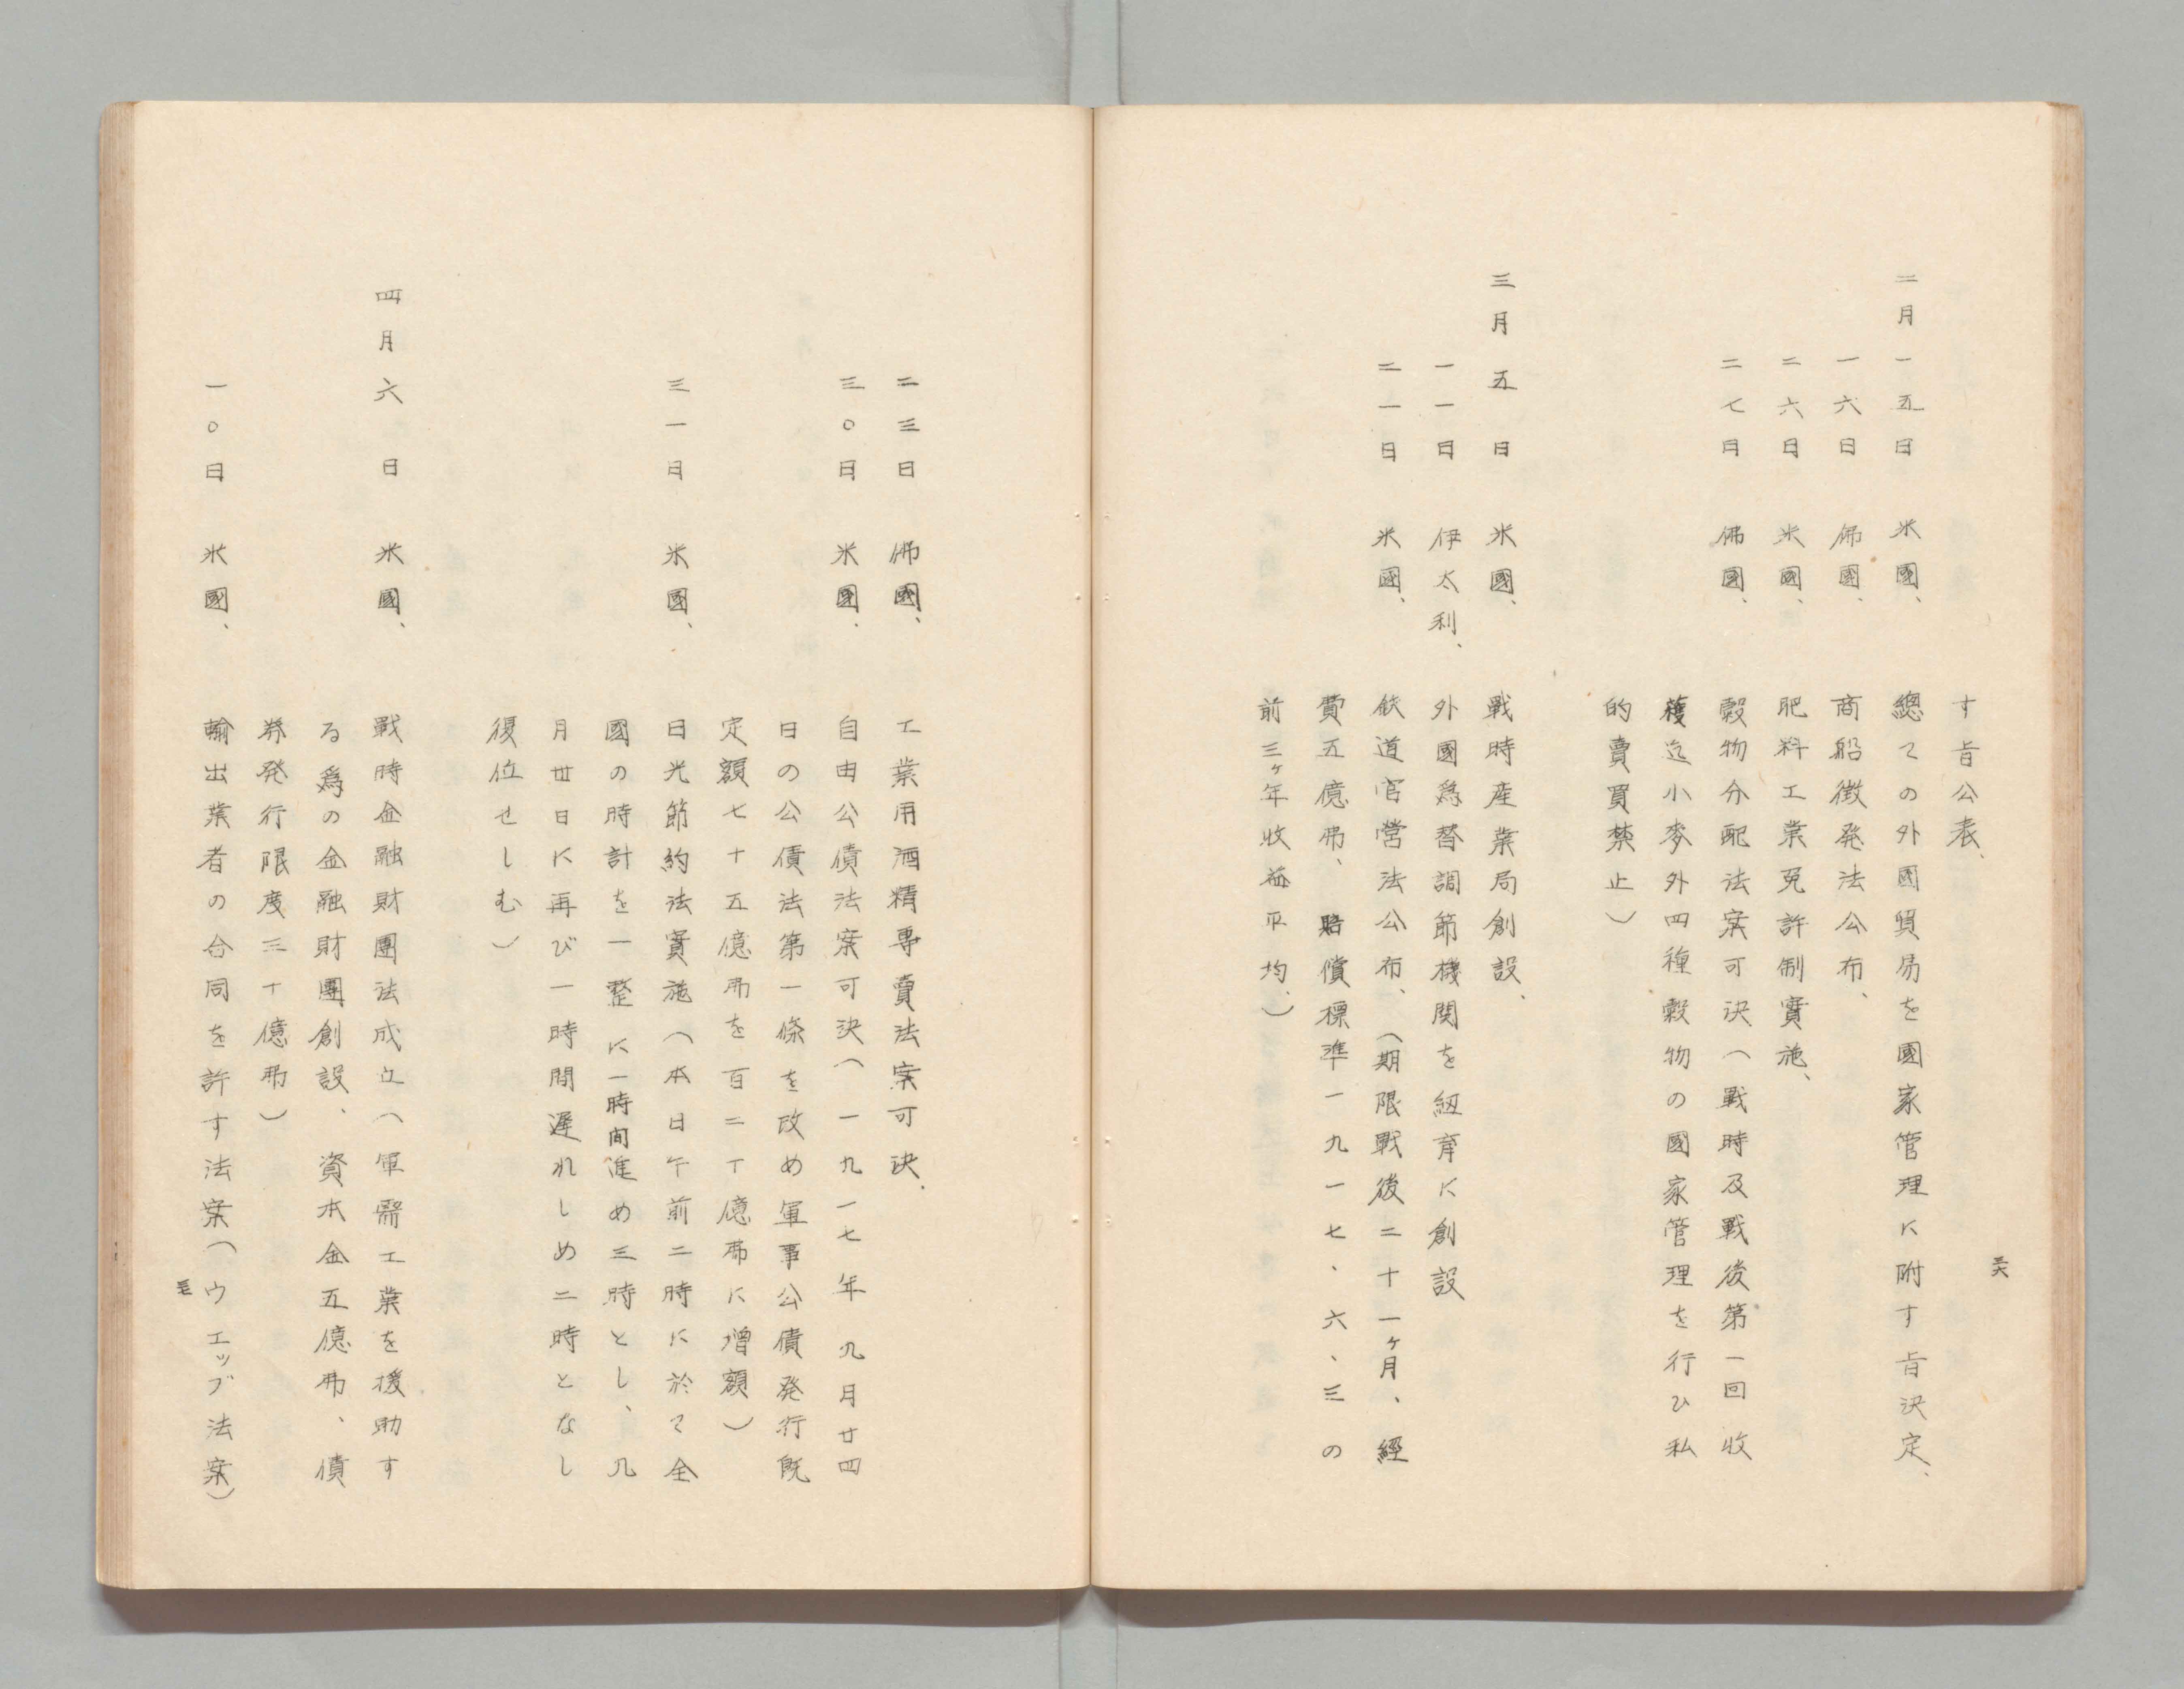 す旨公表、
二月一五日 米國、 總ての外國貿易を國家管理に附す旨決定、
一六日 佛國、 商船徴発法公布、
二六日 米國、 肥料工業免許制實施、
二七日 佛國、 穀物分配法案可決（戰時及戰後第一回收
穫迄小麥外四種穀物の國家管理を行ひ私
的賣買禁止）
三月五日 米國、 戰時産業局創設、
一一日 伊太利、 外國爲替調節機関を紐育に創設
二一日 米國、 鉄道官営法公布、（期限戰後二十一ヶ月、經
費五億弗、賠償標準一九一七、六、三の
前三ヶ年收益平均、）
三六
二三日 佛國、 工業用酒精専賣法案可決、
三〇日 米國、 自由公債法案可決（一九一七年九月廿四
日の公債法第一條を改め軍事公債発行既
定額七十五億弗を百二十億弗に増額）
三一日 米國、 日光節約法實施（本日午前二時に於て全
國の時計を一整に一時間進め三時とし、九
月廿日に再び一時間遲れしめ二時となし
復位せしむ）
四月六日 米國、 戰時金融財團法成立（軍需工業を援助す
る爲の金融財團創設、資本金五億弗、債
券発行限度三十億弗）
一〇日 米國、 輸出業者の合同を許す法案（ウエッブ法案）
三七